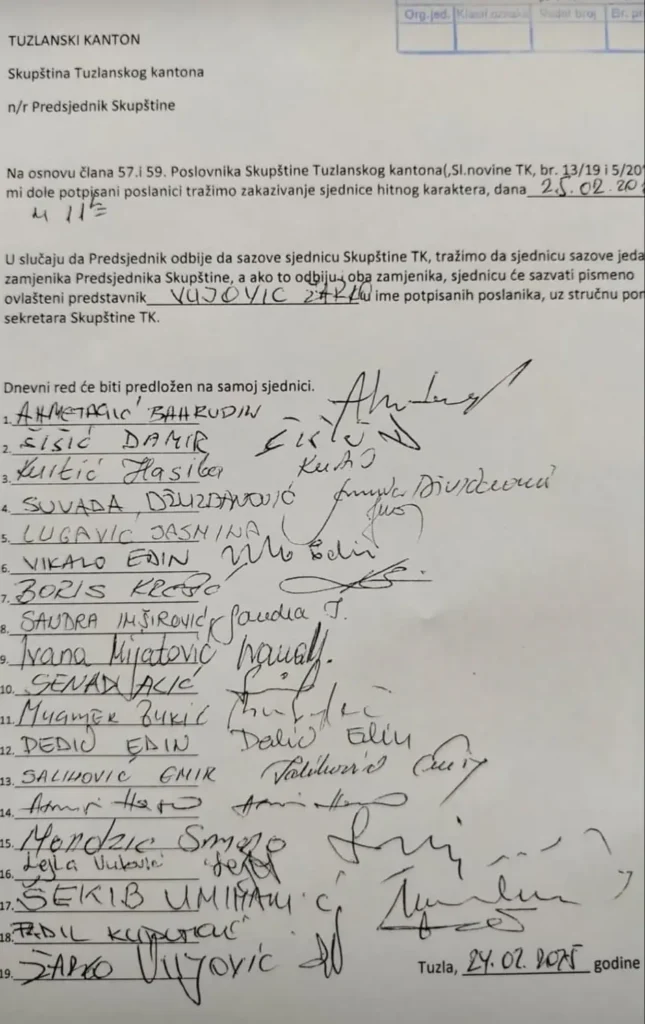 Org.jed. Klasif.oznaka Redni broj Br. pri
TUZLANSKI KANTON
Skupština Tuzlanskog kantona
n/r Predsjednik Skupštine
Na osnovu člana 57.i 59. Poslovnika Skupštine Tuzlanskog kantona(,Sl.novine TK, br. 13/19 i 5/20
mi dole potpisani poslanici tražimo zakazivanje sjednice hitnog karaktera, dana 25.02.20
u 11
U slučaju da Predsjednik odbije da sazove sjednicu Skupštine TK, tražimo da sjednicu sazove jeda
zamjenika Predsjednika Skupštine, a ako to odbiju oba zamjenika, sjednicu će sazvati pismeno
ovlašteni predstavnik VUJOVIC ŽARKO u ime potpisanih poslanika, uz stručnu
sekretara Skupštine TK.
Dnevni red će biti predložen na samoj sjednici.
1. AHMETAGIĆ BAHRUDIN
2. ŠIŠIĆ DAMIR
3. Kurtić Hasiba
4. SUVADA DŽUZDANOVIĆ
5. LUGAVIĆ JASMINA
6. VIKALO EDIN Edin
7. BORIS KREŠIĆ
8. SANDRA IMŠIROVIĆ Sandra I.
9. Ivana Mijatović
10. SENAD ALIĆ
11. MUAMER ZUKIĆ
12. DEDIĆ EDIN Dedić Edin
13. SALIHOVIĆ EMIR Salihović
14.
15. Mondzic Smajo
16. Lejla Vuković
17. ŠEKIB UMIHANIĆ
18. FADIL
19. ŽARKO VUJOVIĆ
Tuzla, 24.02.2025 godine